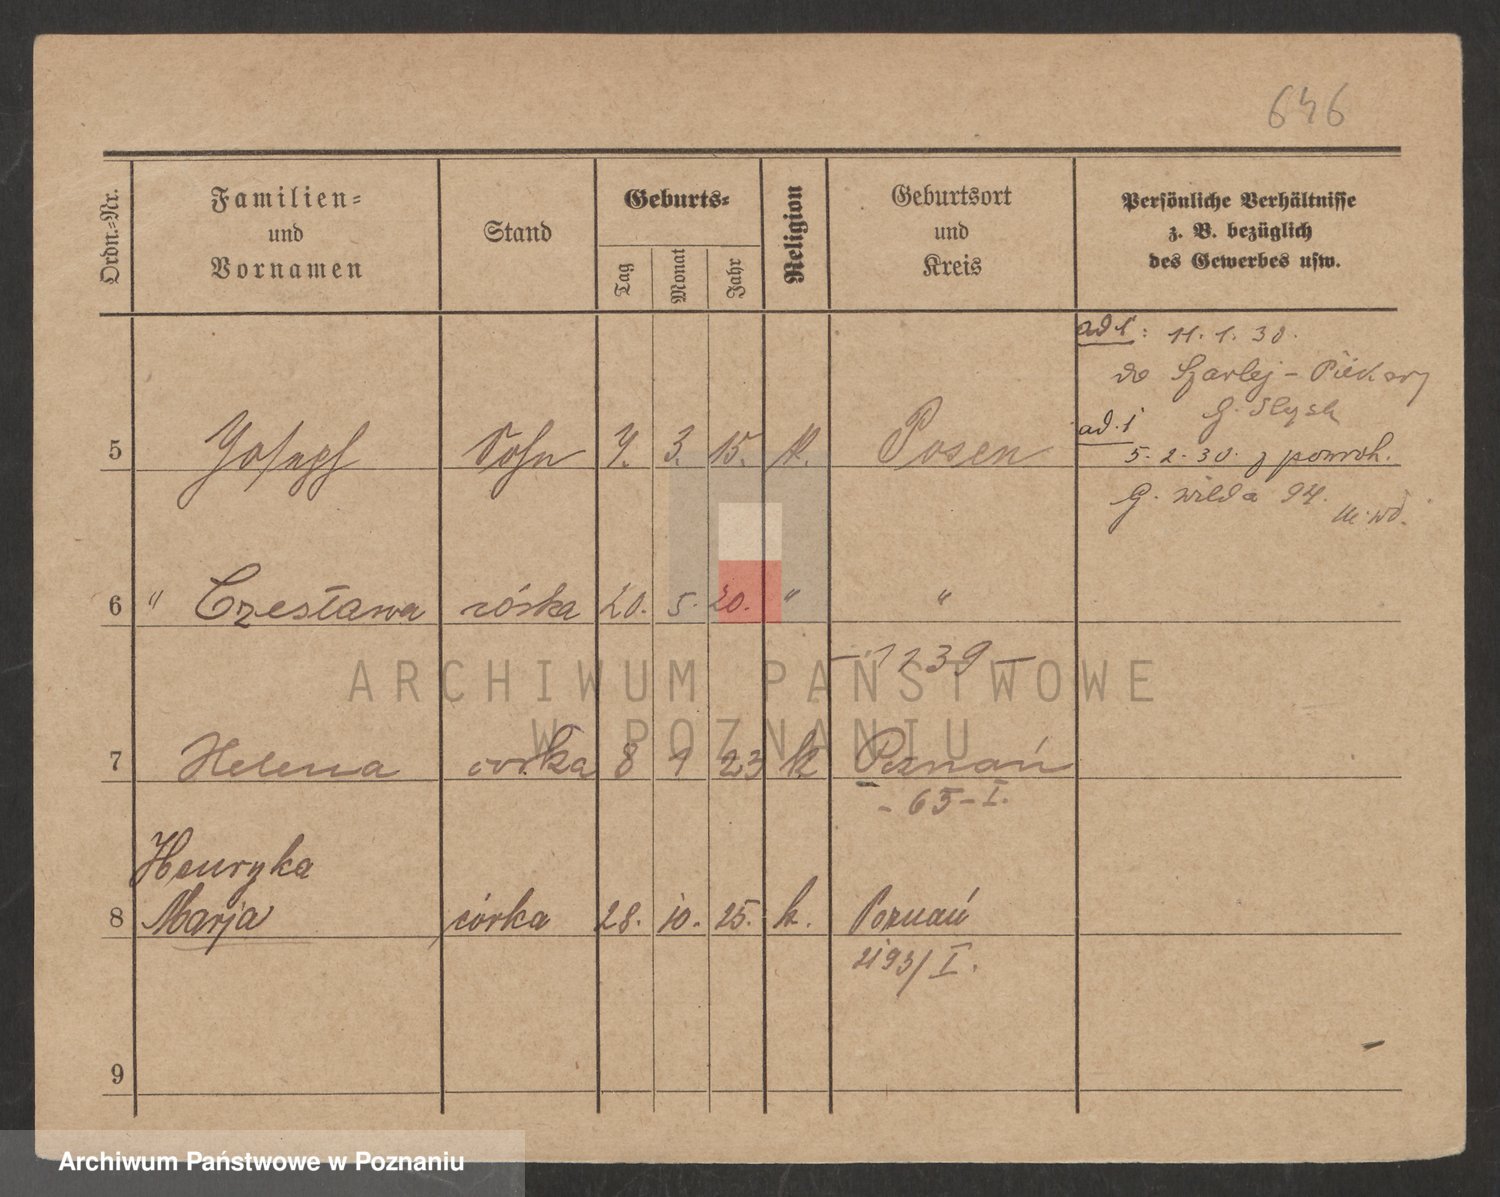 646
Ordn.-Nr.
Familien-
und
Vornamen
Stand
Geburts-
Tag
Monat
Jahr
Religion
Geburtsort
und
Kreis
Persönliche Verhältnisse
z. B. bezüglich
des Gewerbes usw.
ad 1: 11. 1. 30.
do Szarlej - Piekary
G. Slysk
ad. 1
5. 2. 30. z powroh.
G. Wilda 94.
5 Joseph Sohn 7. 3. 15. k. Posen
6 " Czesława córka 20. 5. 20. " "
- 1239 -
7 Helena córka 8 1 23 k Poznań
- 65 - I.
Henryka
8 Marja córka 28. 10. 25. k. Poznań
2193/I.
9
ARCHIWUM PAŃSTWOWE
W POZNANIU
Archiwum Państwowe w Poznaniu